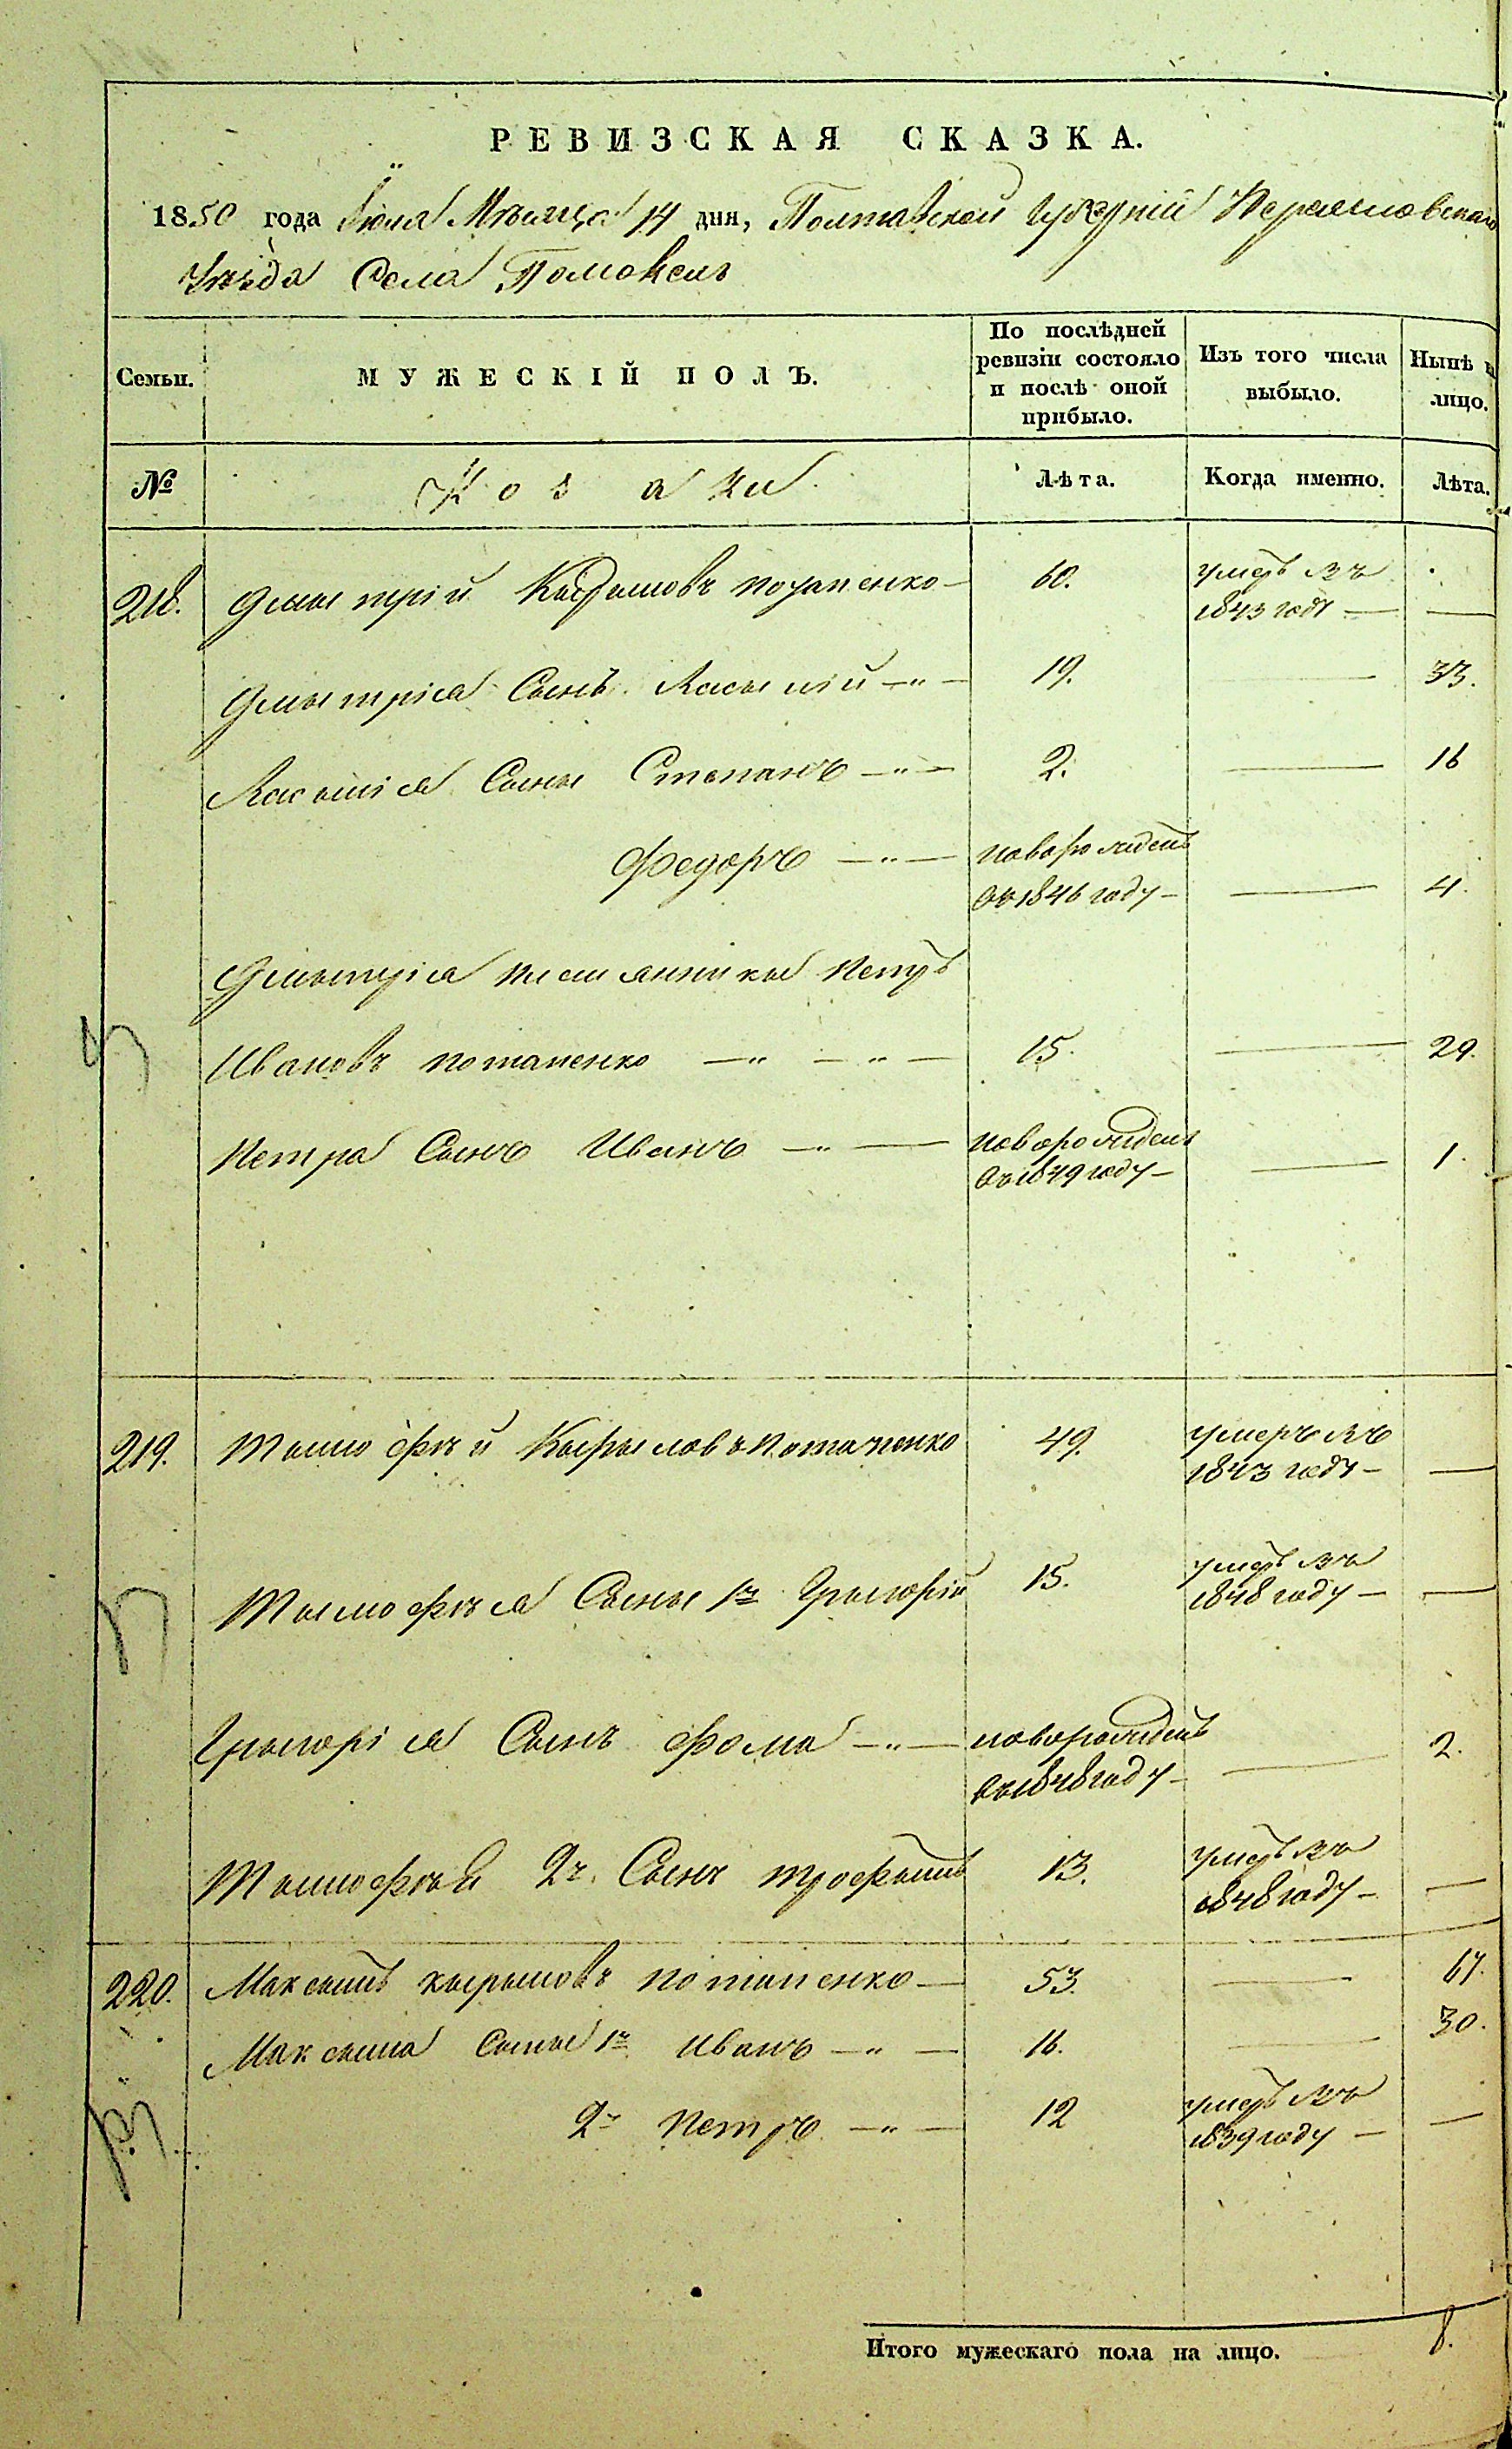 РЕВИЗСКАЯ СКАЗКА.
1850 года Іюля Мѣсяца 14 дня, Полтавской Губерніи Переяславскаго
Уѣзда Села Помоклъ
Семьи.
МУЖЕСКІЙ ПОЛЪ.
По послѣдней ревизіи состояло и послѣ оной прибыло.
Изъ того числа выбыло.
Нынѣ на лицо.
№
Козаки
Лѣта.
Когда именно.
Лѣта.
218. Дмытрій Кырыловъ потапенко — 60. умеръ въ
1843 году — —
Дмытрія Сынъ Василій —„— 19. — 33.
Василія Сыны Степанъ —„— 2. — 16
Федоръ —„— новорожденъ
въ 1846 году — — 4.
Дмытрія племянникъ Петръ
Ивановъ потапенко —„—„— 15. — 29.
Петра Сынъ Иванъ —„— новорожденъ
въ 1849 году — — 1.
219. Тымофѣй Кырыловъ Потапенко 49. умеръ въ
1843 году — —
Тымофѣя Сыны 1й Грыгорій 15. умеръ въ
1848 году — —
Грыгорія Сынъ Фома —„— новорожденъ
въ 1848 году — — 2.
Тымофѣя 2й Сынъ трофымъ 13. умеръ въ
1848 году — —
220. Максымъ кырыловъ потапенко — 53. — 67.
Максыма Сыны 1й Иванъ —„— 16. — 30.
2й Петръ —„— 12 умеръ въ
1839 году — —
Итого мужескаго пола на лицо. 8.